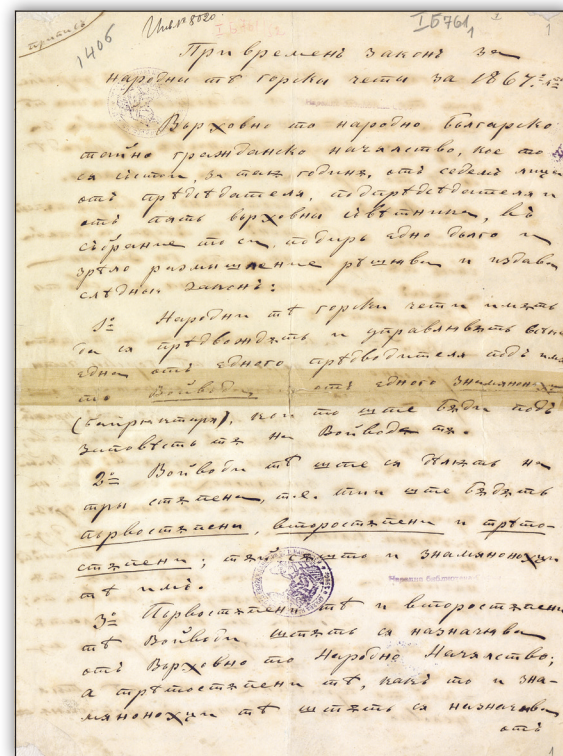 преписъ
1406
Инв. № 8020
I Б 761
1
Привременъ законъ за
народни тѣ горски чети за 1867.
Върховно то народно българско
тайно гражданско началство, кое то
ся състои, за таѭ годинѫ, отъ седемь лица
отъ прѣдсѣдателя, подпрѣдсѣдателя и
отъ пять върховни съвѣтници, въ
събрание то си, подиръ едно дълго и
зрѣло размишление рѣшява и издава
слѣднѭ законъ:
1º Народни тѣ горски чети имѫтъ
да ся прѣдвождѫтъ и управлявѫтъ
една отъ едного прѣдводителя подъ имя
то Войвода, отъ едного знамяноносца
(байрактаря), кой то ште бѫди подъ
заповѣсть тѫ на Войвода та.
2º Войводи тѣ ште ся дѣлѫтъ на
три стѫпени, т.е. тии ште бѫдѫтъ
първостѫпени, второстѫпени и трѣто-
стѫпени; тѫй сѫшто и знамяноносци
тѣ имъ.
3º Първостѫпени тѣ и второстѫпени
тѣ Войводи штѫтъ ся назначява
отъ Върховно то Народно Началство;
а трѣтостѫпени тѣ, какъ то и зна-
мяноносци тѣ штѫтъ ся назначава
отъ
1